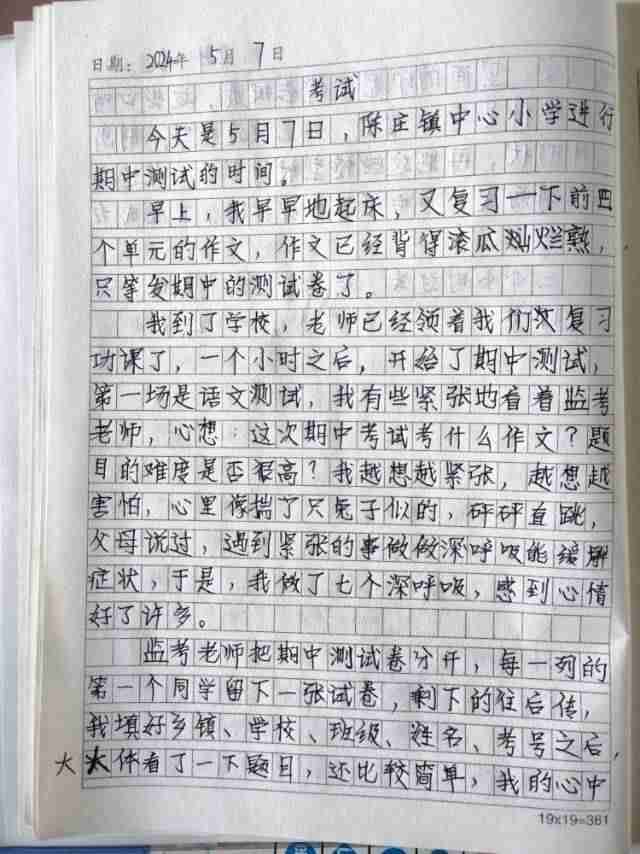 日期：2024年 5月 7日
考试
今天是5月7日，陈庄镇中心小学进行
期中测试的时间。
早上，我早早地起床，又复习一下前四
个单元的作文，作文已经背得滚瓜灿烂熟，
只等发期中的测试卷了。
我到了学校，老师已经领着我们次复习
功课了，一个小时之后，开始了期中测试，
第一场是语文测试，我有些紧张地看着监考
老师，心想：这次期中考试考什么作文？题
目的难度是否很高？我越想越紧张，越想越
害怕，心里像揣了只兔子似的，砰砰直跳，
父母说过，遇到紧张的事做做深呼吸能缓解
症状，于是，我做了七个深呼吸，感到心情
好了许多。
监考老师把期中测试卷分开，每一列的
第一个同学留下一张试卷，剩下的往后传，
我填好乡镇、学校、班级、姓名、考号之后，
大大体看了一下题目，还比较简单，我的心中
19x19=361